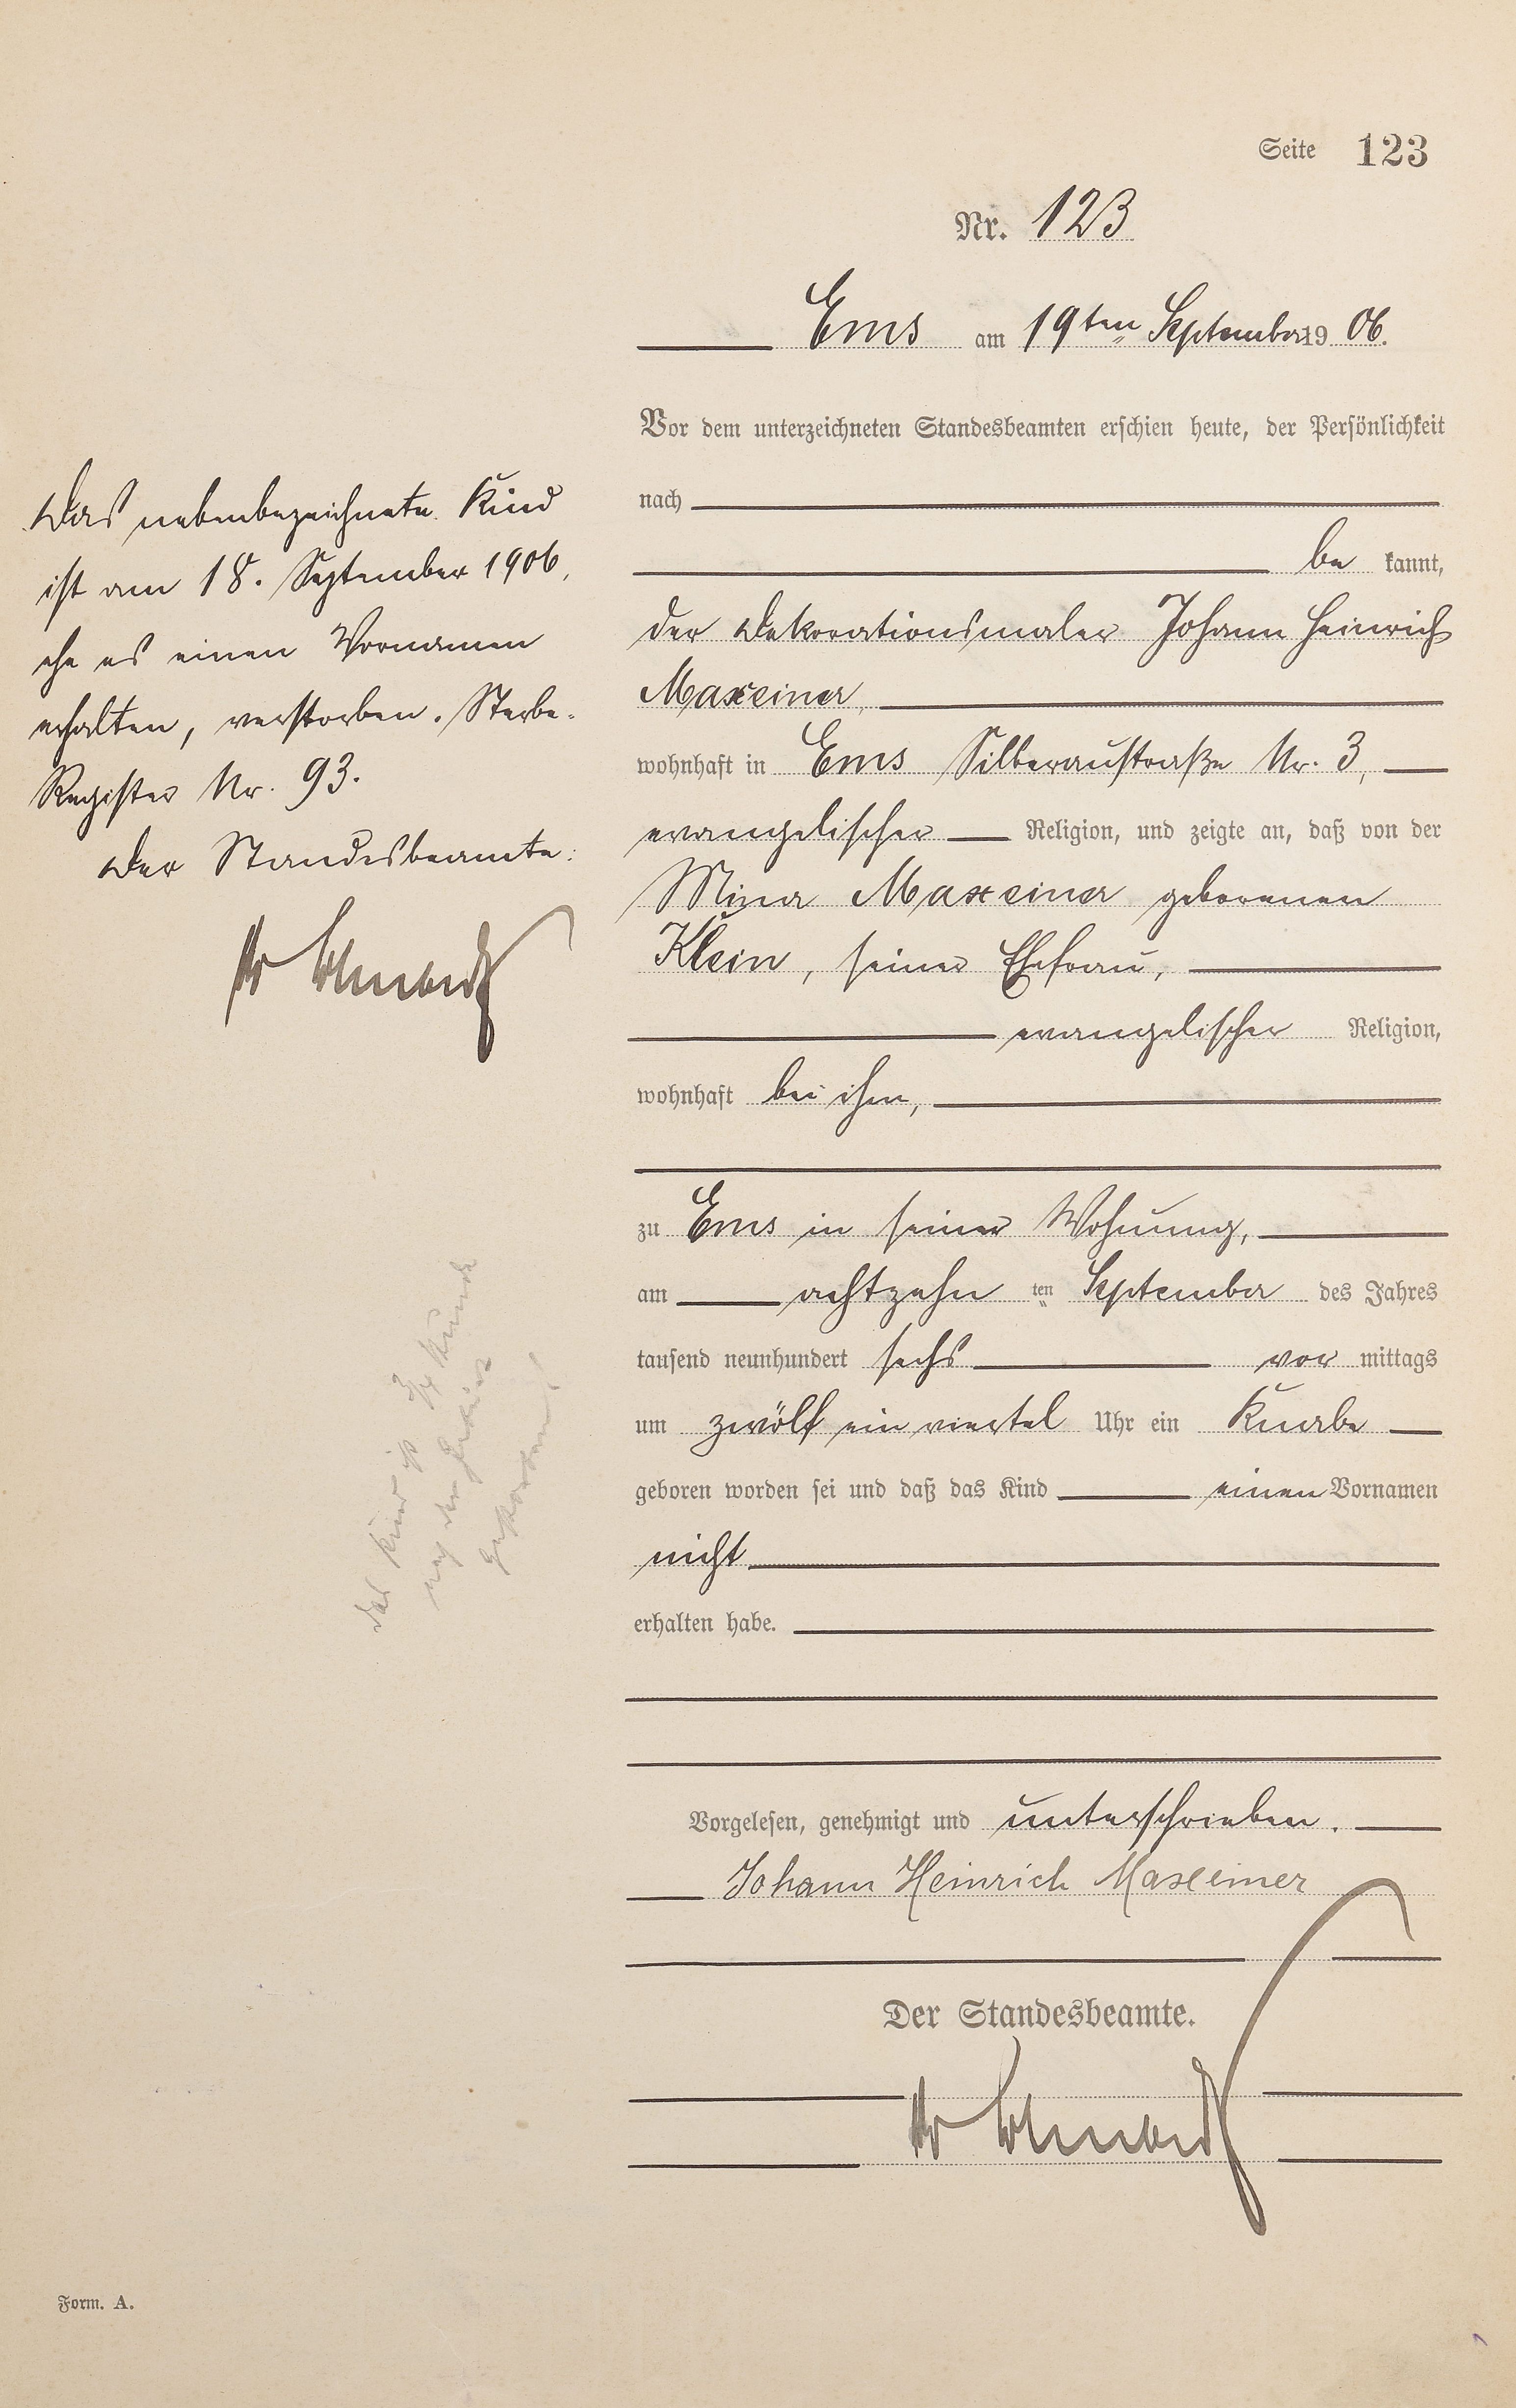 Seite 123
Nr. 123
Ems am 19ten September 1906.
Vor dem unterzeichneten Standesbeamten erschien heute, der Persönlichkeit
nach
be kannt,
der Dekorationsmaler Johann Heinrich
Maxeiner,
wohnhaft in Ems Silberaustraße Nr. 3,
evangelischer Religion, und zeigte an, daß von der
Mina Maxeiner geborenen
Klein, seiner Ehefrau,
evangelischer Religion,
wohnhaft bei ihm,
zu Ems in seiner Wohnung,
am achtzehn ten September des Jahres
tausend neunhundert sechs vor mittags
um zwölf ein viertel Uhr ein Knabe
geboren worden sei und daß das Kind einen Vornamen
nicht
erhalten habe.
Vorgelesen, genehmigt und unterschrieben.
Johann Heinrich Maxeiner
Der Standesbeamte.
Das nebenbezeichnete Kind
ist am 18. September 1906,
ehe es einen Vornamen
erhalten, verstorben. Sterbe-
Register Nr. 93.
Der Standesbeamte:
Das Kind ist 3/4 Stunde
nach der Geburt
gestorben
Form. A.